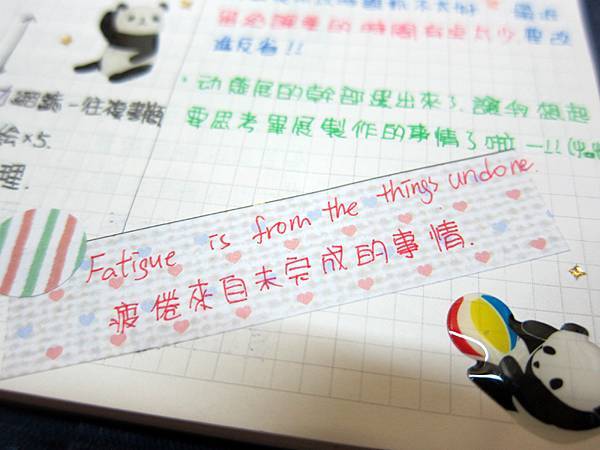 的時間有点太少,要改
進反省!!
・动態展的幹部選出來了,讓我想起
要思考畢展製作的事情了啦 —!!
x5.
理.
Fatigue is from the things undone.
疲倦來自未完成的事情.